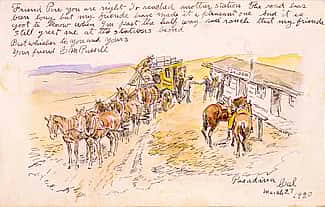 Friend Pine you are right I reached another station The road has
been long but my friends have made it a pleasant one And it is
good to know when I'm past the half way and such that my friends
Still greet me at the stations
Best whishes to you and yours
Your friend C M Russell
Pasadena
Cal
March 27
1920